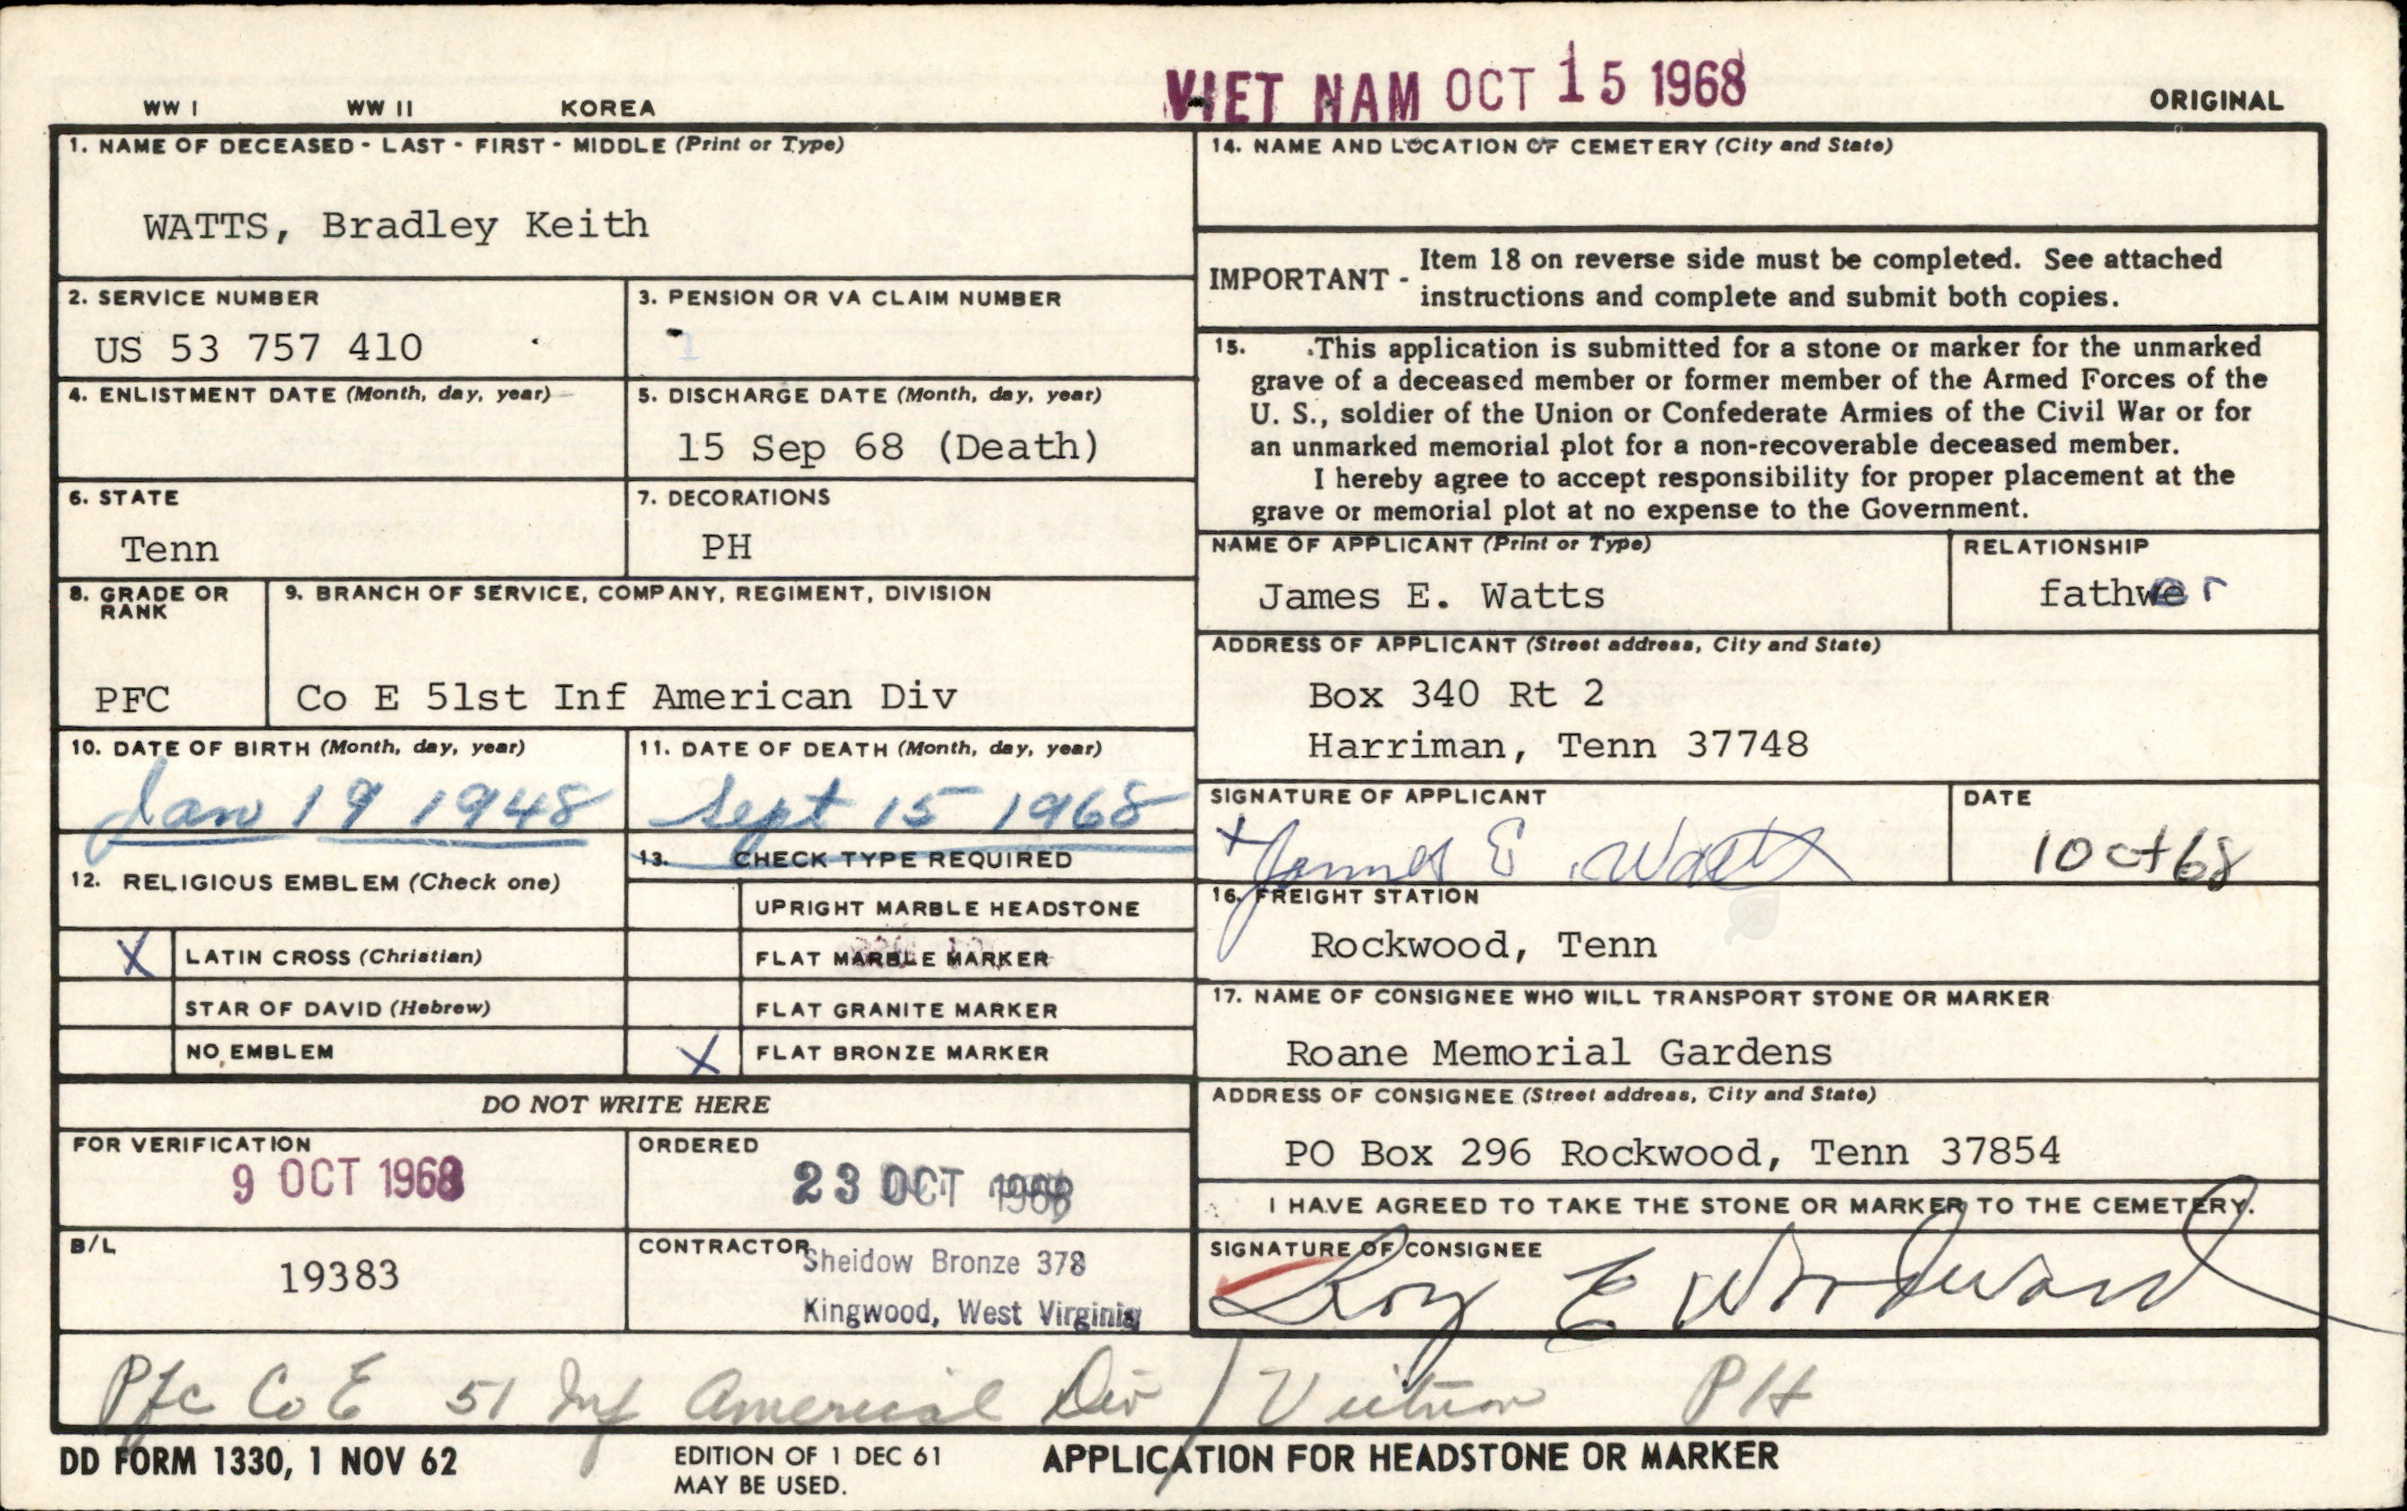 VIET NAM OCT 15 1968
WW I WW II KOREA ORIGINAL
1. NAME OF DECEASED - LAST - FIRST - MIDDLE (Print or Type)
WATTS, Bradley Keith
2. SERVICE NUMBER
US 53 757 410
3. PENSION OR VA CLAIM NUMBER
4. ENLISTMENT DATE (Month, day, year)
5. DISCHARGE DATE (Month, day, year)
15 Sep 68 (Death)
6. STATE
Tenn
7. DECORATIONS
PH
8. GRADE OR RANK
PFC
9. BRANCH OF SERVICE, COMPANY, REGIMENT, DIVISION
Co E 51st Inf American Div
10. DATE OF BIRTH (Month, day, year)
Jan 19 1948
11. DATE OF DEATH (Month, day, year)
Sept 15 1968
12. RELIGIOUS EMBLEM (Check one)
X LATIN CROSS (Christian)
STAR OF DAVID (Hebrew)
NO EMBLEM
13. CHECK TYPE REQUIRED
UPRIGHT MARBLE HEADSTONE
FLAT MARBLE MARKER
FLAT GRANITE MARKER
X FLAT BRONZE MARKER
DO NOT WRITE HERE
FOR VERIFICATION
9 OCT 1968
ORDERED
23 OCT 1968
B/L
19383
CONTRACTOR
Sheidow Bronze 378
Kingwood, West Virginia
14. NAME AND LOCATION OF CEMETERY (City and State)
IMPORTANT - Item 18 on reverse side must be completed. See attached
instructions and complete and submit both copies.
15. This application is submitted for a stone or marker for the unmarked
grave of a deceased member or former member of the Armed Forces of the
U. S., soldier of the Union or Confederate Armies of the Civil War or for
an unmarked memorial plot for a non-recoverable deceased member.
I hereby agree to accept responsibility for proper placement at the
grave or memorial plot at no expense to the Government.
NAME OF APPLICANT (Print or Type)
James E. Watts
RELATIONSHIP
father
ADDRESS OF APPLICANT (Street address, City and State)
Box 340 Rt 2
Harriman, Tenn 37748
SIGNATURE OF APPLICANT
X James E Watts
DATE
1 Oct 68
16. FREIGHT STATION
Rockwood, Tenn
17. NAME OF CONSIGNEE WHO WILL TRANSPORT STONE OR MARKER
Roane Memorial Gardens
ADDRESS OF CONSIGNEE (Street address, City and State)
PO Box 296 Rockwood, Tenn 37854
I HAVE AGREED TO TAKE THE STONE OR MARKER TO THE CEMETERY.
SIGNATURE OF CONSIGNEE
Roy E Woodward
Pfc Co E 51 Inf Americal Div / Vietnam PH
DD FORM 1330, 1 NOV 62
EDITION OF 1 DEC 61
MAY BE USED.
APPLICATION FOR HEADSTONE OR MARKER